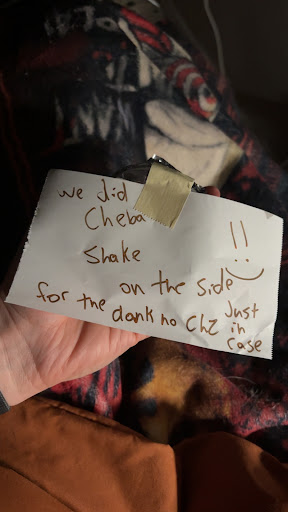 we did
Cheba
Shake
on the side
for the dank no Chz
Just
in
case